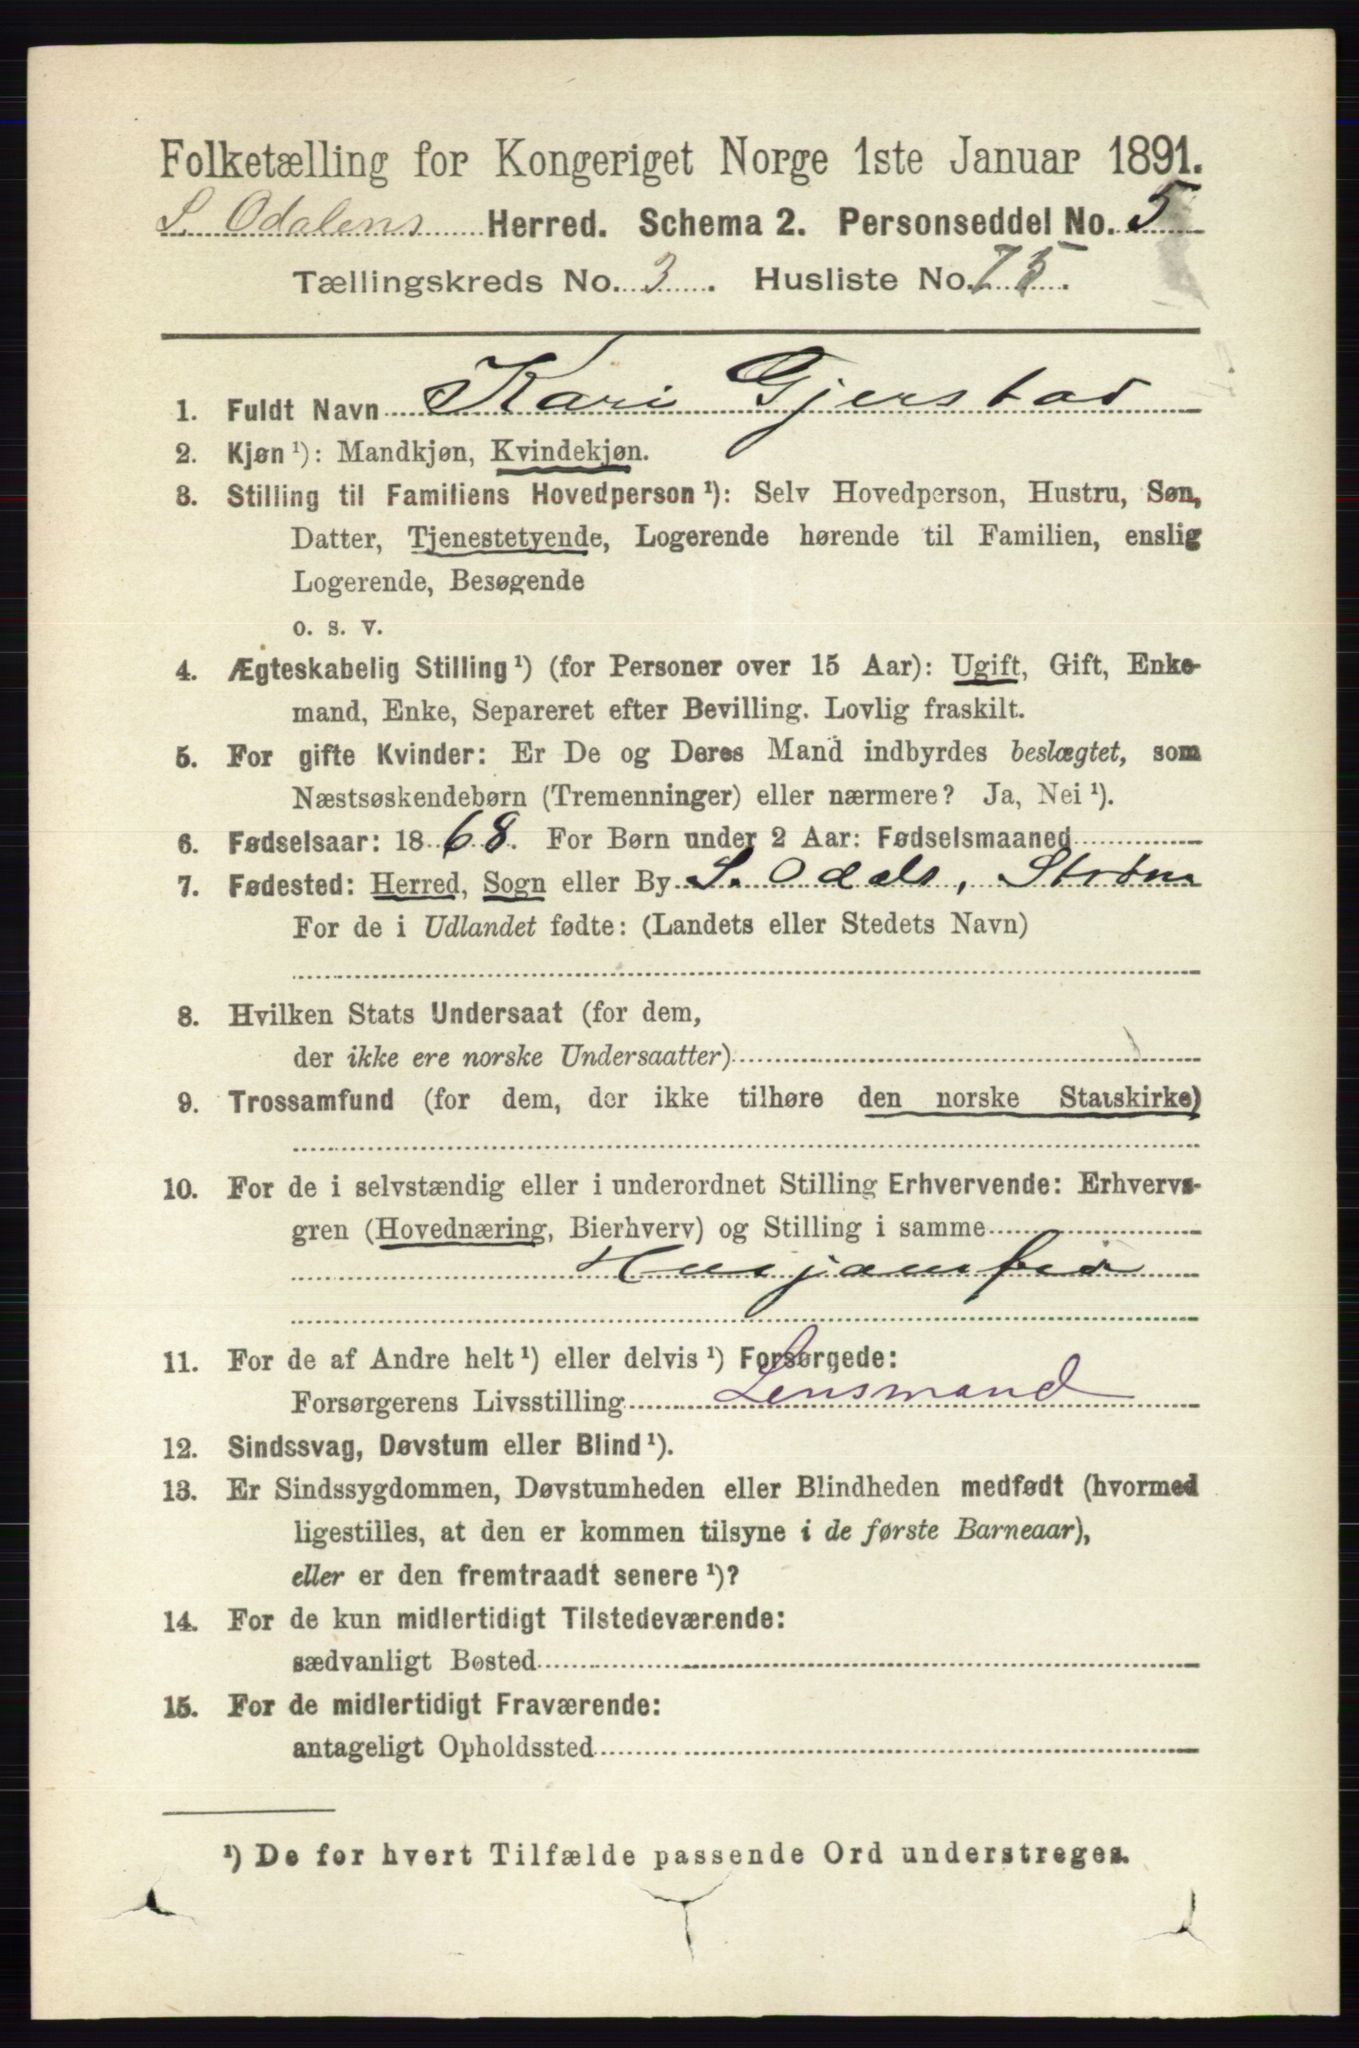 Folketælling for Kongeriget Norge 1ste Januar 1891.
S. Odalens Herred. Schema 2. Personseddel No. 5
Tællingskreds No. 3. Husliste No. 75.
1. Fuldt Navn Kari Gjerstad
2. Kjøn ¹): Mandkjøn, Kvindekjøn.
3. Stilling til Familiens Hovedperson ¹): Selv Hovedperson, Hustru, Søn,
Datter, Tjenestetyende, Logerende hørende til Familien, enslig
Logerende, Besøgende
o. s. v.
4. Ægteskabelig Stilling ¹) (for Personer over 15 Aar): Ugift, Gift, Enke-
mand, Enke, Separeret efter Bevilling. Lovlig fraskilt.
5. For gifte Kvinder: Er De og Deres Mand indbyrdes beslægtet, som
Næstsøskendebørn (Tremenninger) eller nærmere? Ja, Nei ¹).
6. Fødselsaar: 1868. For Børn under 2 Aar: Fødselsmaaned
7. Fødested: Herred, Sogn eller By S. Odals, Strøm
For de i Udlandet fødte: (Landets eller Stedets Navn)
8. Hvilken Stats Undersaat (for dem,
der ikke ere norske Undersaatter)
9. Trossamfund (for dem, der ikke tilhøre den norske Statskirke)
10. For de i selvstændig eller i underordnet Stilling Erhvervende: Erhvervs-
gren (Hovednæring, Bierhverv) og Stilling i samme
11. For de af Andre helt ¹) eller delvis ¹) Forsørgede:
Forsørgerens Livsstilling Lensmand
12. Sindssvag, Døvstum eller Blind ¹).
13. Er Sindssygdommen, Døvstumheden eller Blindheden medfødt (hvormed
ligestilles, at den er kommen tilsyne i de første Barneaar),
eller er den fremtraadt senere ¹)?
14. For de kun midlertidigt Tilstedeværende:
sædvanligt Bosted
15. For de midlertidigt Fraværende:
antageligt Opholdssted
¹) De for hvert Tilfælde passende Ord understreges.